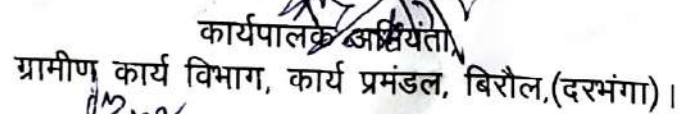 कार्यपालक अभियंता
ग्रामीण कार्य विभाग, कार्य प्रमंडल, बिरौल,(दरभंगा)।